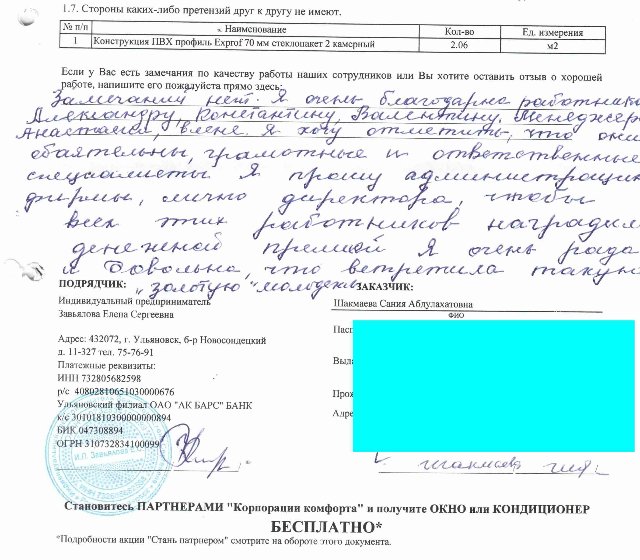 1.7. Стороны каких-либо претензий друг к другу не имеют.
№ п/п Наименование Кол-во Ед. измерения
1 Конструкция ПВХ профиль Exprof 70 мм стеклопакет 2 камерный 2.06 м2
Если у Вас есть замечания по качеству работы наших сотрудников или Вы хотите оставить отзыв о хорошей
работе, напишите его пожалуйста прямо здесь:
Замечаний нет. Я очень благодарна работника
Александру, Константину, Валентину. Менеджера
Анастасии, Елене. Я хочу отметить, что они
обаятельны, грамотные и ответственные
специалисты. Я прошу администраци
фирмы, лично директора, чтобы
всех этих работников наградил
денежной премией Я очень рада
и довольна, что встретила такую
"золотую" молодежь
ПОДРЯДЧИК: ЗАКАЗЧИК:
Индивидуальный предприниматель
Завьялова Елена Сергеевна
Шакмаева Сания Абдулахатовна
ФИО
Адрес: 432072, г. Ульяновск, б-р Новосондецкий
д. 11-327 тел. 75-76-91
Платежные реквизиты:
ИНН 732805682598
р/с 40802810651030000676
Ульяновский филиал ОАО "АК БАРС" БАНК
к/с 30101810300000000894
БИК 047308894
ОГРН 310732834100099
Пасп
Выда
Прож
Адре
И.П. Завьялова Е.С.
Становитесь ПАРТНЕРАМИ "Корпорации комфорта" и получите ОКНО или КОНДИЦИОНЕР
БЕСПЛАТНО*
*Подробности акции "Стань патрнером" смотрите на обороте этого документа.